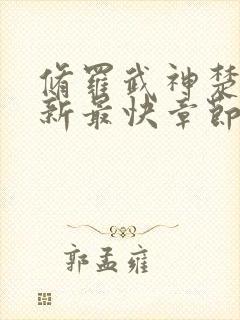 脩羅武神楚
新最快章節
郭孟雍